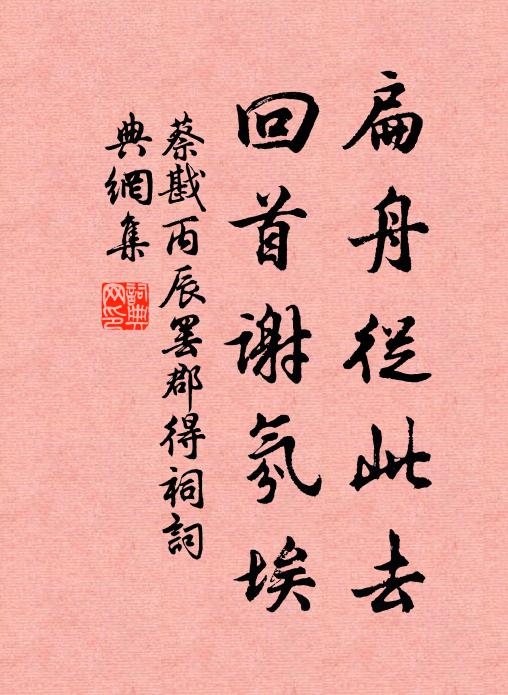 扁舟從此去
回首謝氛埃
蔡戡丙辰罢郡得祠詞
典網集
詞典網印